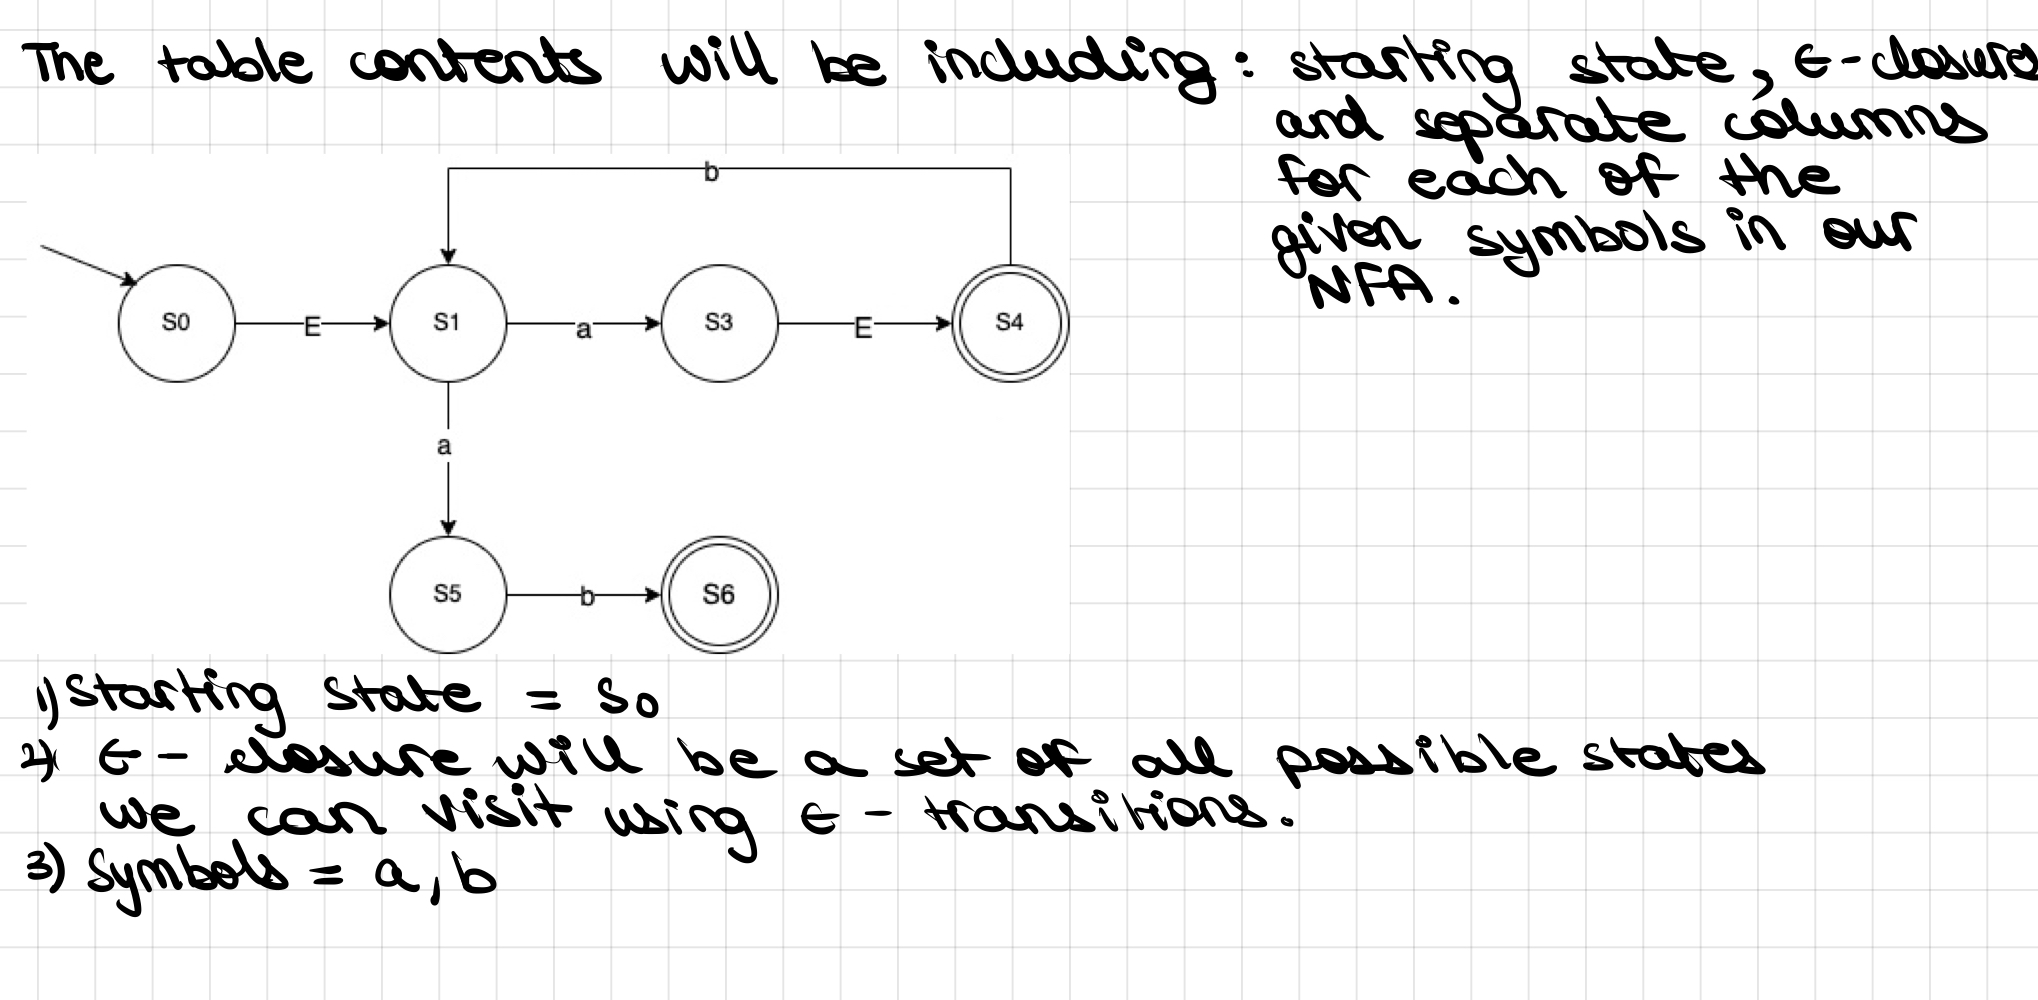 The table contents will be including: starting state, ϵ-closure
and separate columns
for each of the
given symbols in our
NFA.
b
S0 E S1 a S3 E S4
a
S5 b S6
1) Starting state = S0
2) ϵ - closure will be a set of all possible states
we can visit using ϵ - transitions.
3) Symbols = a, b